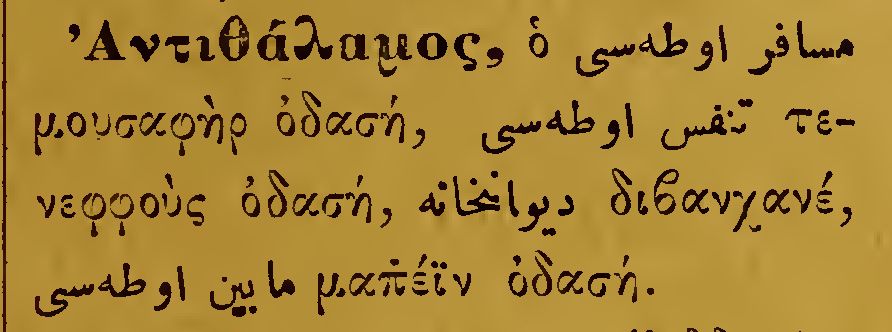 Ἀντιθάλαμος, ὁ مسافر اوطه‌سی
μουσαφὴρ ὀδασή, تنفس اوطه‌سی τε-
νεφφοὺς ὀδασή, دیوانخانه διβανχανέ,
مابین اوطه‌سی μαπ̇έϊν ὀδασή.